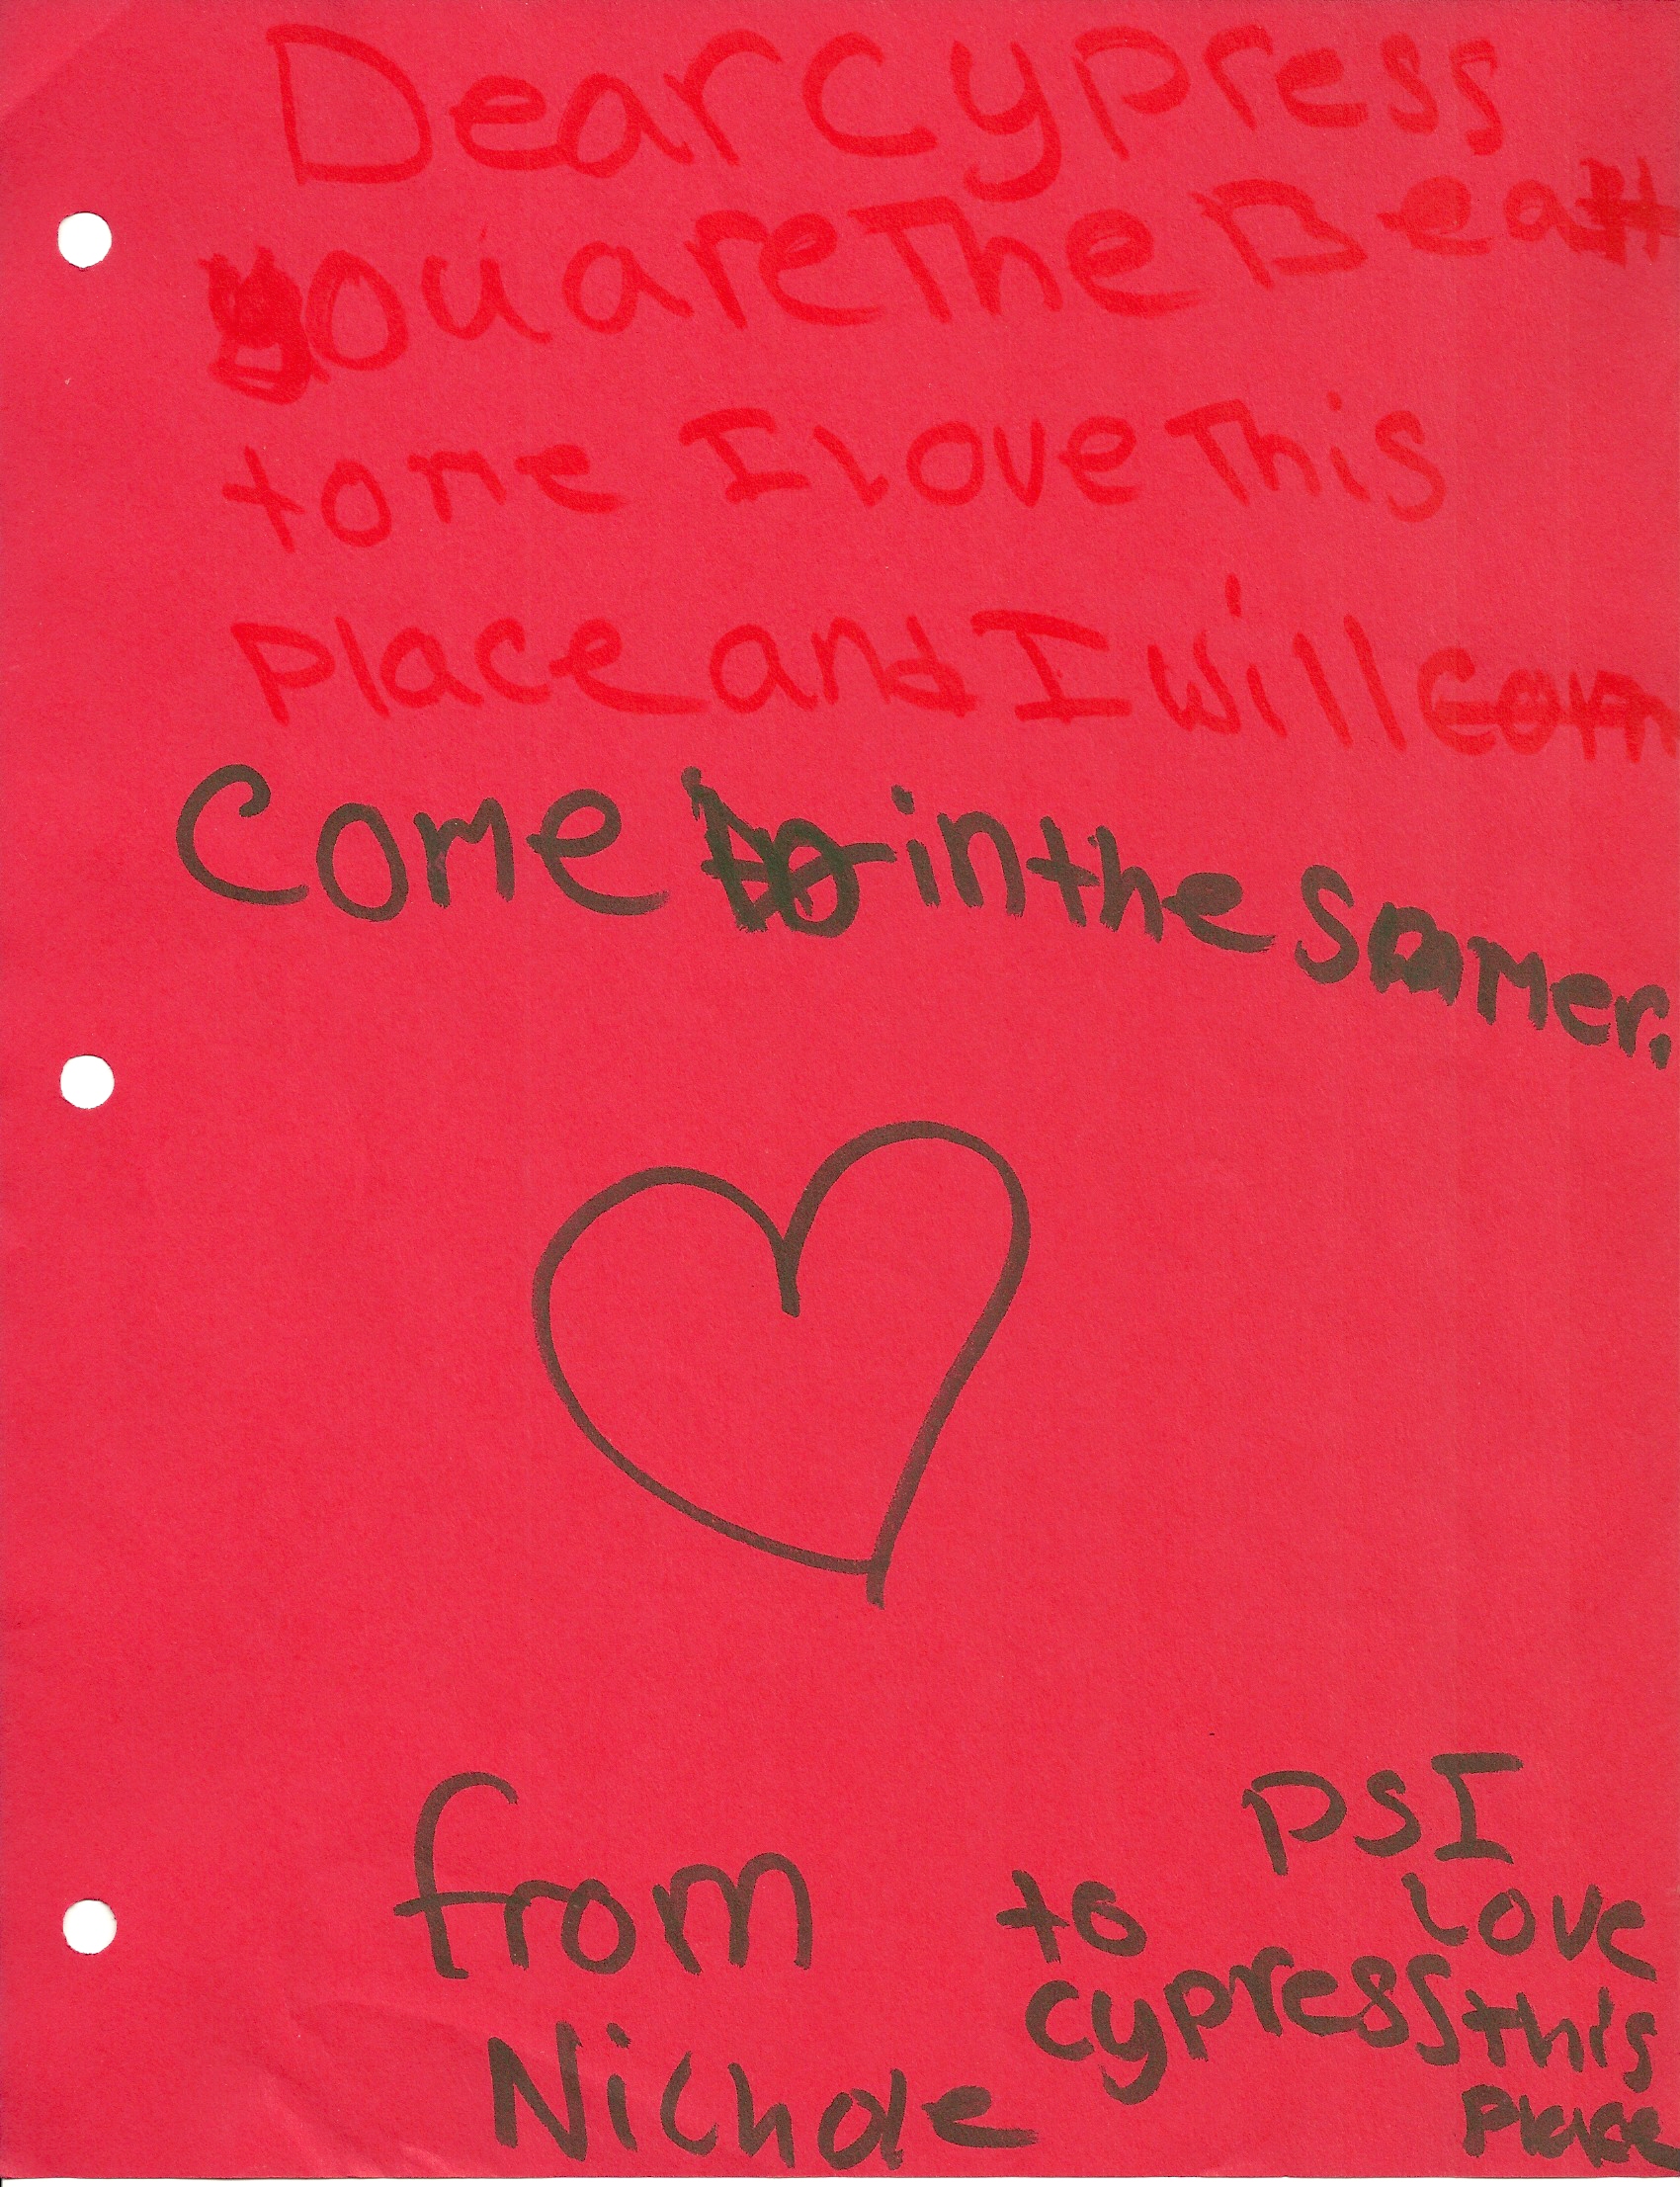 Dear cypress
you are The Beast
to me I love This
place and I will com
Come in the Summer.
from
Nichole
to
cypress
PS I
love
this
place